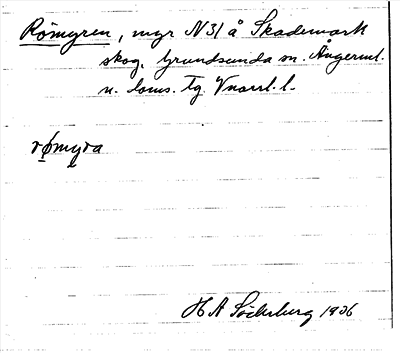 Römyren, myr N31 å Skademark
skog, Grundsunda sn. Ångerml.
n. doms. Tg. Vnorrl. l.
rømyra
H A Söderberg 1936